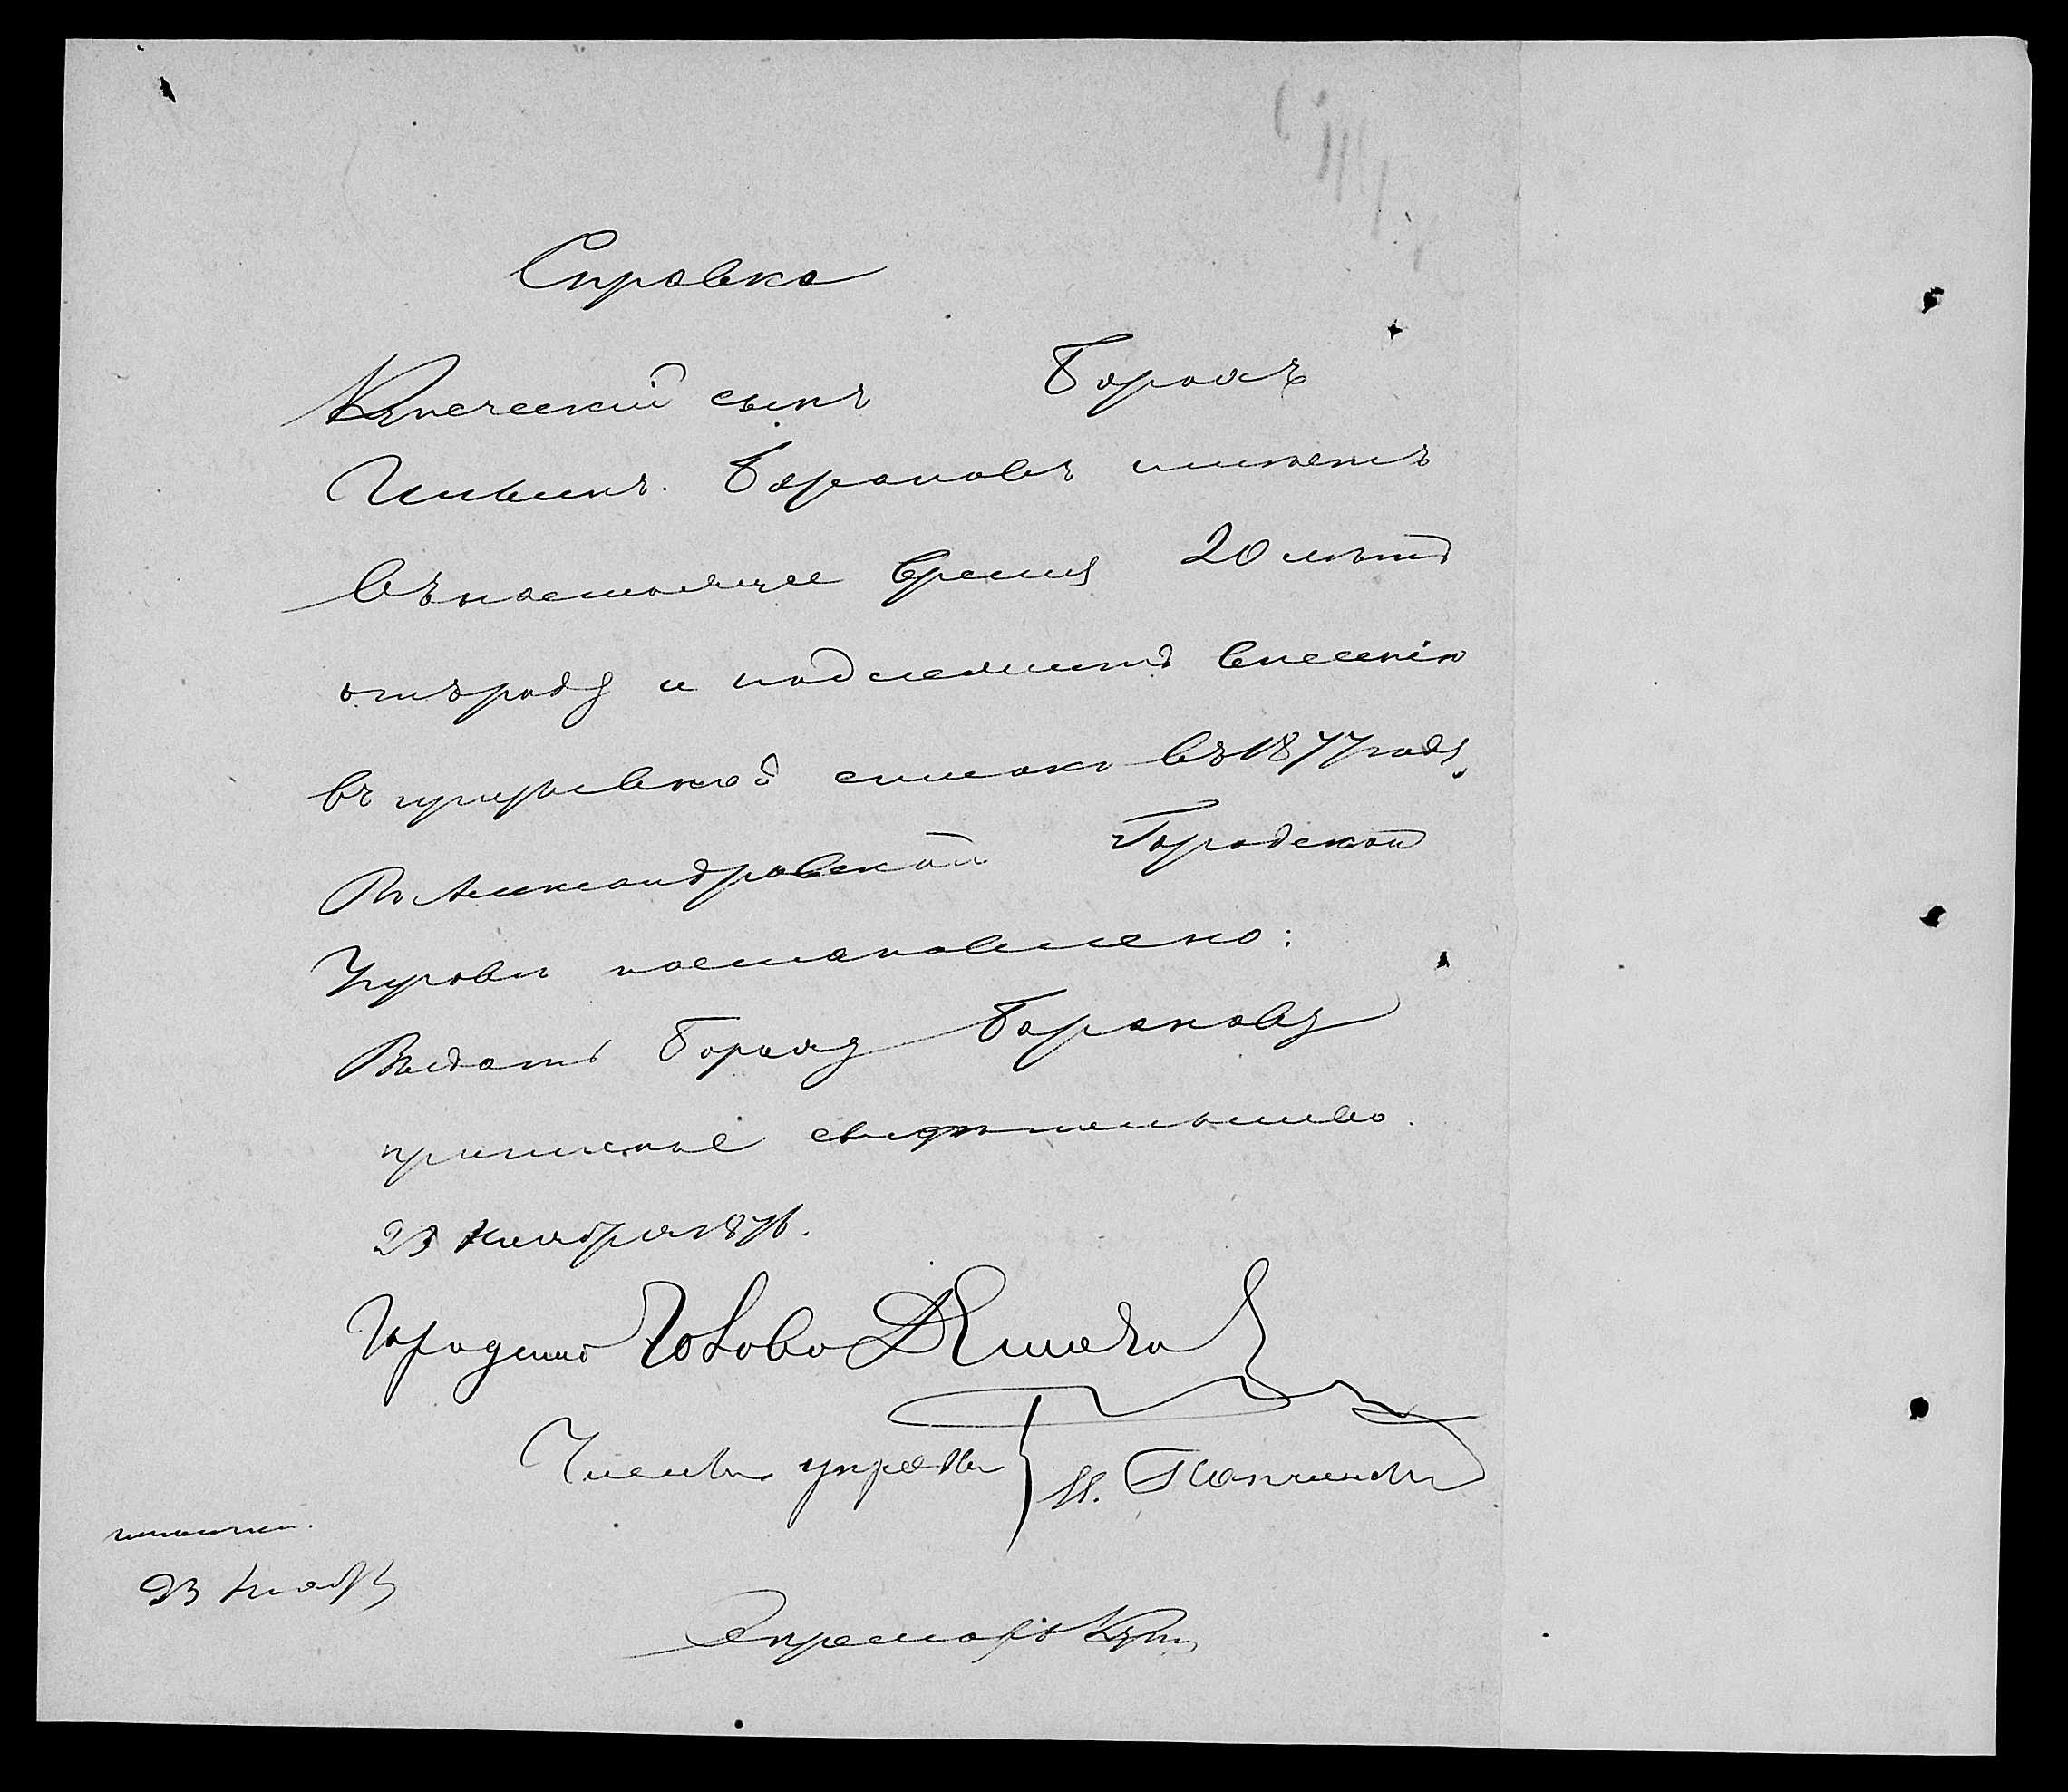 Справка
Купеческій сынъ Борахъ
Барановъ имѣетъ
Въ настоящее время 20 лѣтъ
отъ роду и подлежитъ внесенію
въ призывной списокъ въ 1877 году.
Въ Александровской Городской
Управѣ постановлено:
Выдать Бораху Баранову
приписное свидѣтельство.
23 Ноября 1876.
Городской Голова
Члены управы
Секретарь
23 Ноября